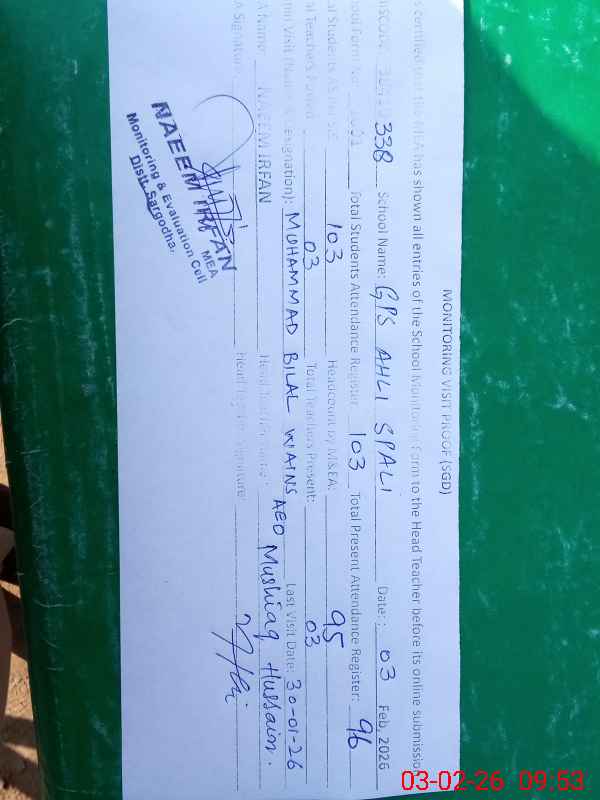 MONITORING VISIT PROOF (SGD)
s Certified that the MEA has shown all entries of the School Monitoring Form to the Head Teacher before its online submission
338 School Name: GPS AHLI SPALI Date: : 03 Feb, 2026
Total Students Attendance Register 103 Total Present Attendance Register: 96
103 Headcount by M&EA: 95
al Teachers Posted 03 Total Teachers Present: 03
Visit (Name Designation): MUHAMMAD BILAL WAINS AEO Last Visit Date: 30-01-26
A Name: NAEEM IRFAN Head Teacher Name: Mushtaq Hussain.
A Signature: Head Teacher Signature:
NAEEM IRFAN
MEA
Monitoring & Evaluation Cell
Distt. Sargodha.
03-02-26 09:53